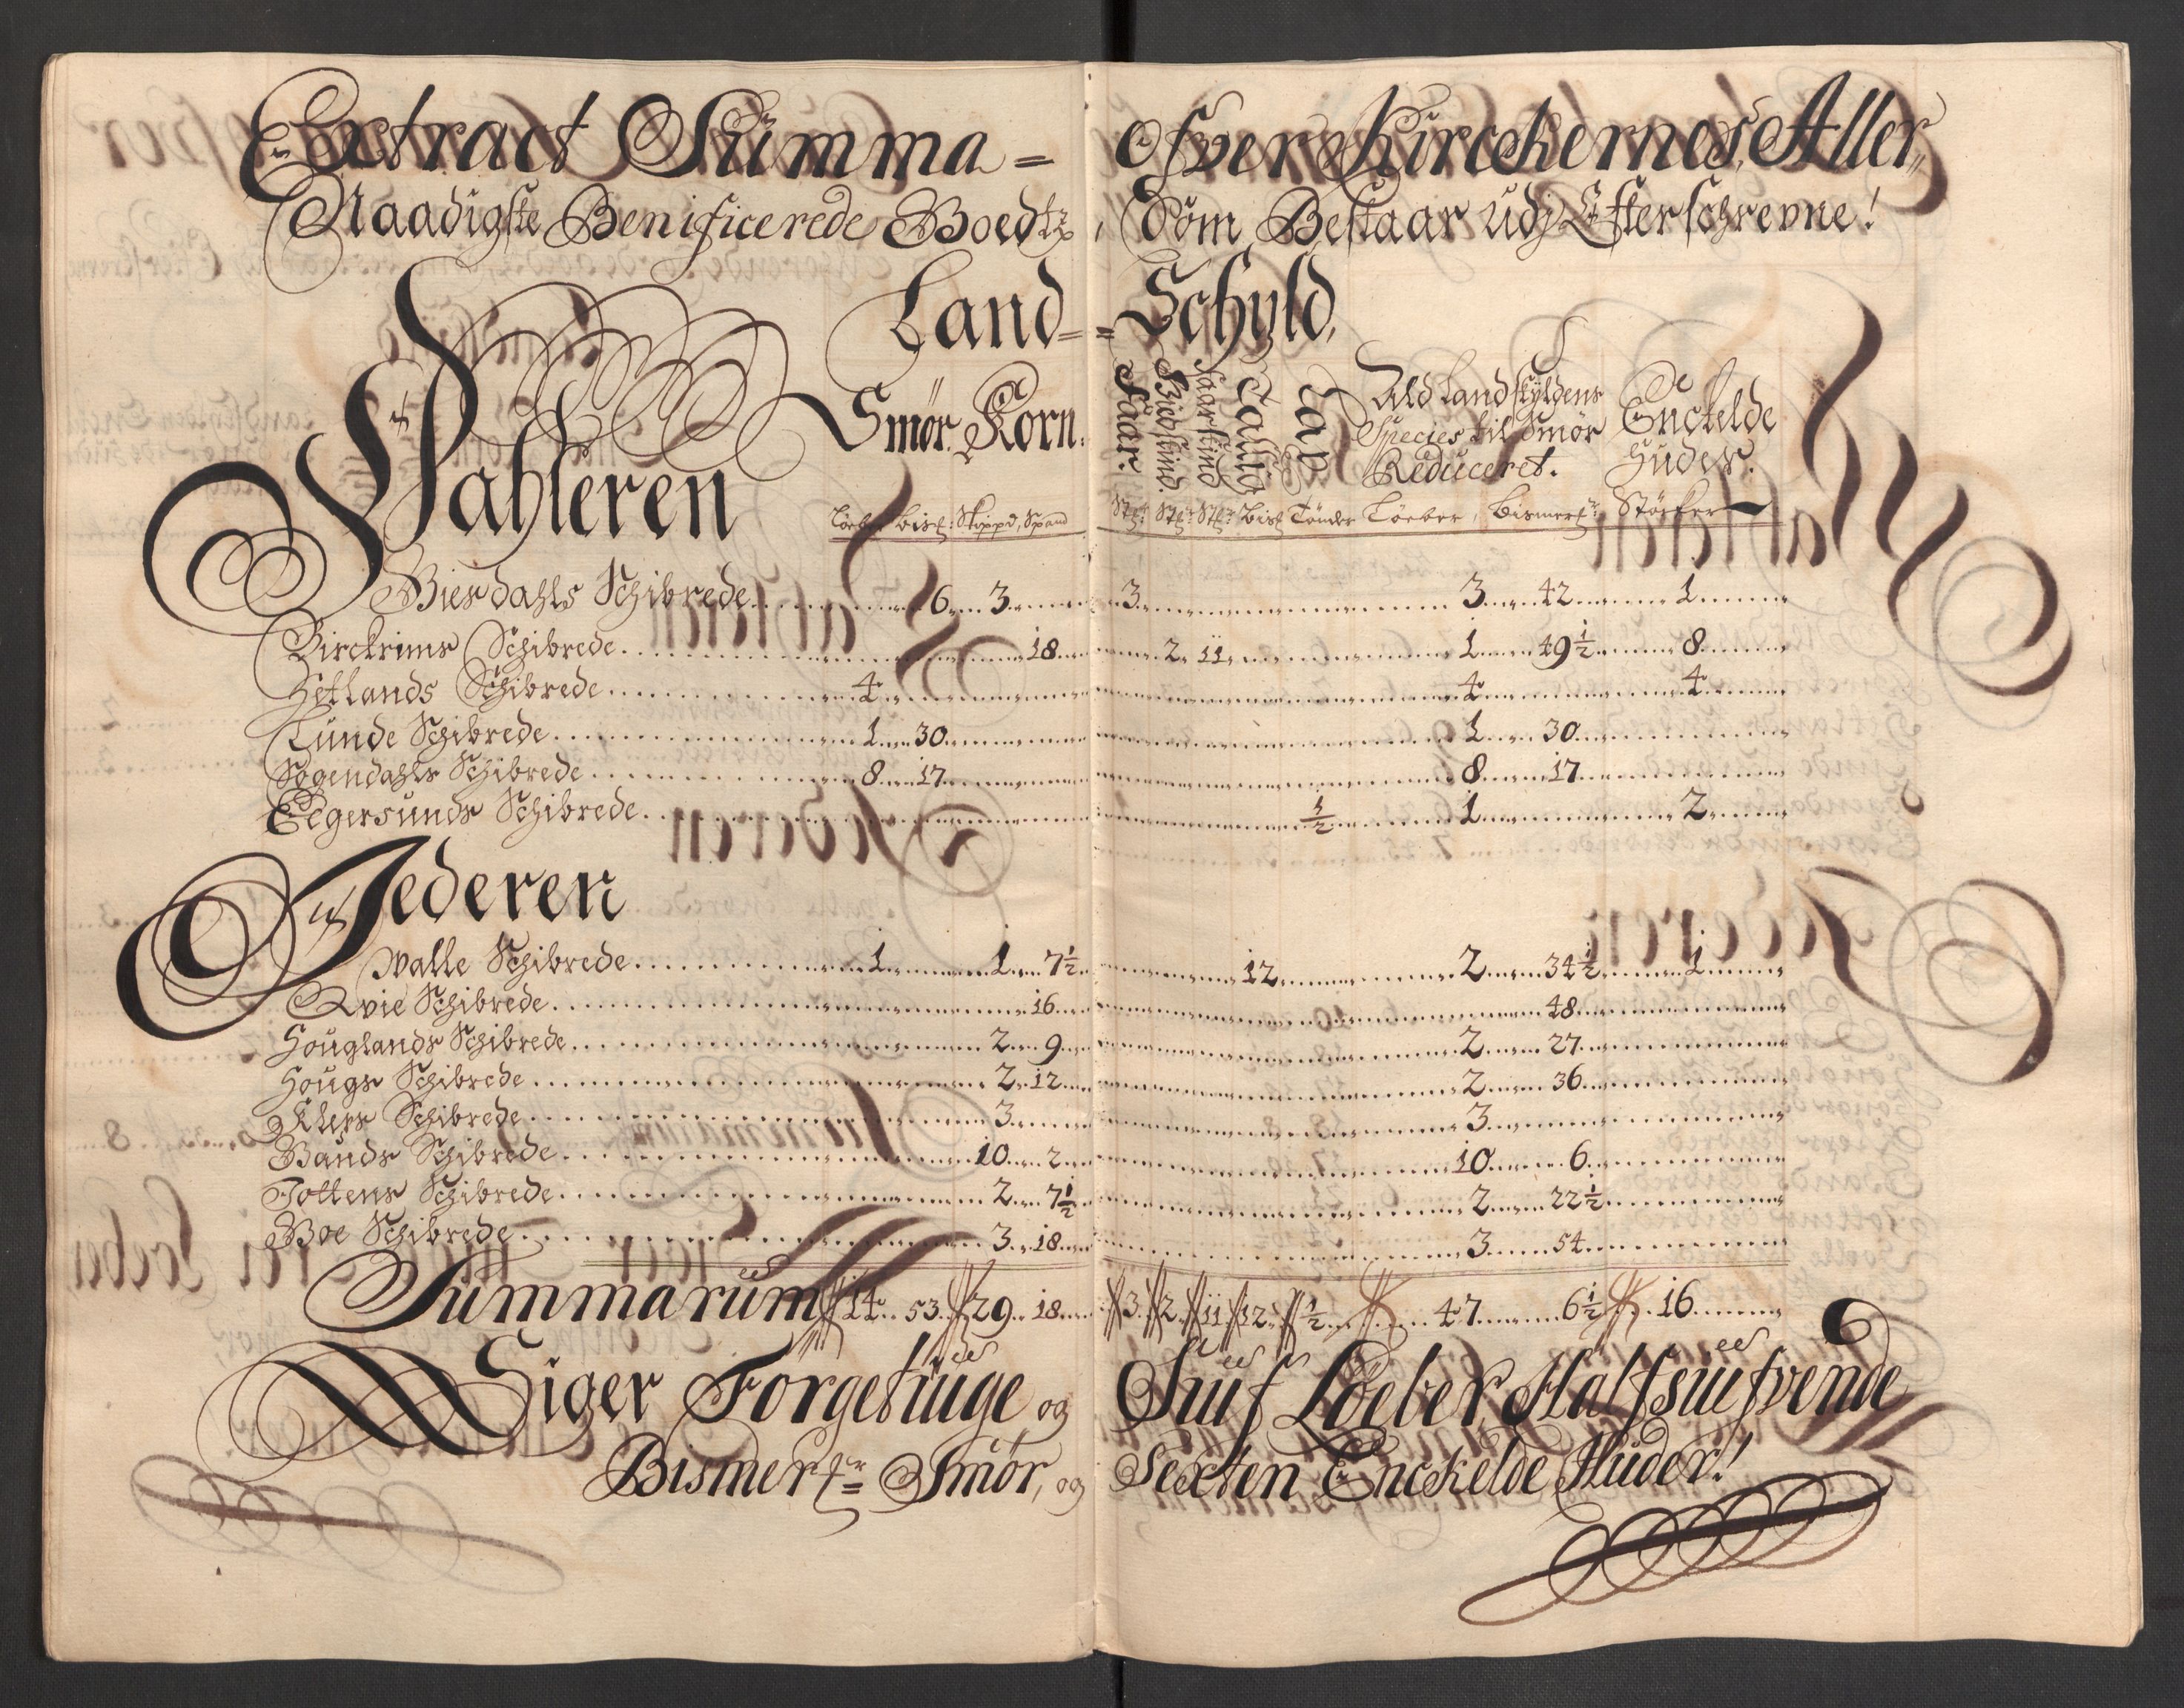 Extract Summa= ofver Kirckernes, Aller„
Naadigste Benificerede Boedtz, Som Bestaar udj Efterschrevne!
Land= =Schyld,
Dahleren
Smør. Korn. Faar. Biedskind. Faarskind Talig Lax Ald Landskyldens Species til Smør Reduceret. Enckelde Huder.
Löeber Bisf: Skippd, Spand Stkr: Stkr Stkr Bisf Tønder Löeber, Bismerf: Störker
Bierdahls Schibrede 6 3 3 3 42 1
Birckrims Schibrede 18 2 11 1 49½ 8
Hetlands Schibrede 4 4 4
Lunde Schibrede 1 30 1 30
Sogendahls Schibrede 8 17 8 17
Eegersunds Schibrede ½ 1 2
Jederen
Walle Schibrede 1 1 7½ 12 2 34½ 1
Qvie Schibrede 16 48
Houglands Schibrede 2 9 2 27
Hougs Schibrede 2 12 2 36
Kleps Schibrede 3 3
Bands Schibrede 10 2 10 6
Tottens Schibrede 2 7½ 2 22½
Boe Schibrede 3 18 3 54
Summarum 14 53 29 18 3 2 11 12 ½ 47 6½ 16
Siger Förgetiuge og Siuf Löeber, Halfsiufvende
Bismerf= Smör, og Sexten Enckelde Huder!